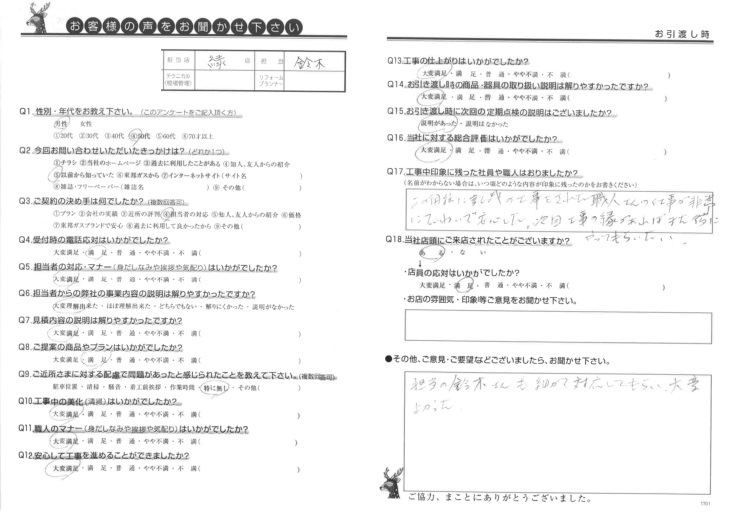 お客様の声をお聞かせ下さい
お引渡し時
担当店 緑 店 担当 鈴木
テクニカル(現場管理) リフォームプランナー
Q1.性別・年代をお教え下さい。(このアンケートをご記入頂く方)
男性 女性
①20代 ②30代 ③40代 ④50代 ⑤60代 ⑥70才以上
Q2.今回お問い合わせいただいたきっかけは?(どれか1つ)
①チラシ ②当社のホームページ ③過去に利用したことがある ④知人、友人からの紹介
⑤以前から知っていた ⑥東邦ガスから ⑦インターネットサイト(サイト名 )
⑧雑誌・フリーペーパー(雑誌名 ) ⑨その他( )
Q3.ご契約の決め手は何でしたか?(複数回答可)
①プラン ②会社の実績 ③近所の評判 ④担当者の対応 ⑤知人、友人からの紹介 ⑥価格
⑦東邦ガスブランドで安心 ⑧過去に利用して良かったから ⑨その他( )
Q4.受付時の電話応対はいかがでしたか?
大変満足・満 足・普 通・やや不満・不 満( )
Q5.担当者の対応・マナー(身だしなみや挨拶や気配り)はいかがでしたか?
大変満足・満 足・普 通・やや不満・不 満( )
Q6.担当者からの弊社の事業内容の説明は解りやすかったですか?
大変理解出来た・ほぼ理解出来た・どちらでもない・解りにくかった・説明がなかった
Q7.見積内容の説明は解りやすかったですか?
大変満足・満 足・普 通・やや不満・不 満( )
Q8.ご提案の商品やプランはいかがでしたか?
大変満足・満 足・普 通・やや不満・不 満( )
Q9.ご近所さまに対する配慮で問題があったと感じられたことを教えて下さい。(複数回答可)
駐車位置・清掃・騒音・着工前挨拶・作業時間・特に無し・その他( )
Q10.工事中の美化(清掃)はいかがでしたか?
大変満足・満 足・普 通・やや不満・不 満( )
Q11.職人のマナー(身だしなみや挨拶や気配り)はいかがでしたか?
大変満足・満 足・普 通・やや不満・不 満( )
Q12.安心して工事を進めることができましたか?
大変満足・満 足・普 通・やや不満・不 満( )
Q13.工事の仕上がりはいかがでしたか?
大変満足・満 足・普 通・やや不満・不 満( )
Q14.お引き渡し時の商品・器具の取り扱い説明は解りやすかったですか?
大変満足・満 足・普 通・やや不満・不 満( )
Q15.お引き渡し時に次回の定期点検の説明はございましたか?
説明があった・説明はなかった
Q16.当社に対する総合評価はいかがでしたか?
大変満足・満 足・普 通・やや不満・不 満( )
Q17.工事中印象に残った社員や職人はおりましたか?
(名前がわからない場合は、いつ頃どのような内容が印象に残ったのかをお書きください)
職人さんの仕事が非常
にていねいで安心した。次回工事の縁があればまた
やってもらいたい。
Q18.当社店頭にご来店されたことがございますか?
ある・ない
・店員の応対はいかがでしたか?
大変満足・満 足・普 通・やや不満・不 満( )
・お店の雰囲気・印象等ご意見をお聞かせ下さい。
●その他、ご意見・ご要望などございましたら、お聞かせ下さい。
担当の鈴木さんも細かく対応してもらい、大変
よかった
ご協力、まことにありがとうございました。